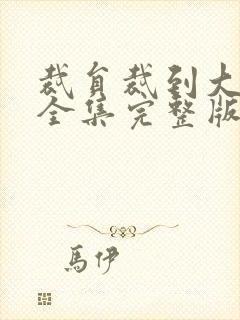 裁自裁到大
全集完整版
馬伊